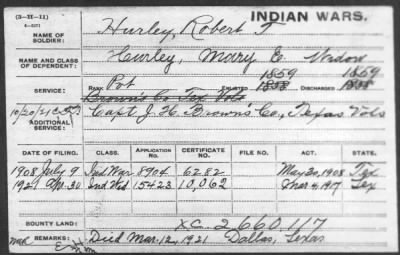 (3-H-11)
INDIAN WARS.
NAME OF SOLDIER: Hurley, Robert T
NAME AND CLASS OF DEPENDENT: Hurley, Mary E. Widow
1859 1859
SERVICE: RANK Pvt ENLISTED 1858 DISCHARGED 1858
Brown's Co Tex Vols
10/20/21
ADDITIONAL SERVICE: Capt J. H. Brown's Co, Texas Vols
DATE OF FILING. CLASS. APPLICATION NO. CERTIFICATE NO. FILE NO. ACT. STATE.
1908 July 9 Ind War 8904 6282 May 30, 1908 Tex
1921 Apr. 30 Ind Wid 15423 10,062 Mar 4, 1917 Tex
BOUNTY LAND: XC. 2 660.117
REMARKS: Died Mar. 12, 1921 Dallas, Texas